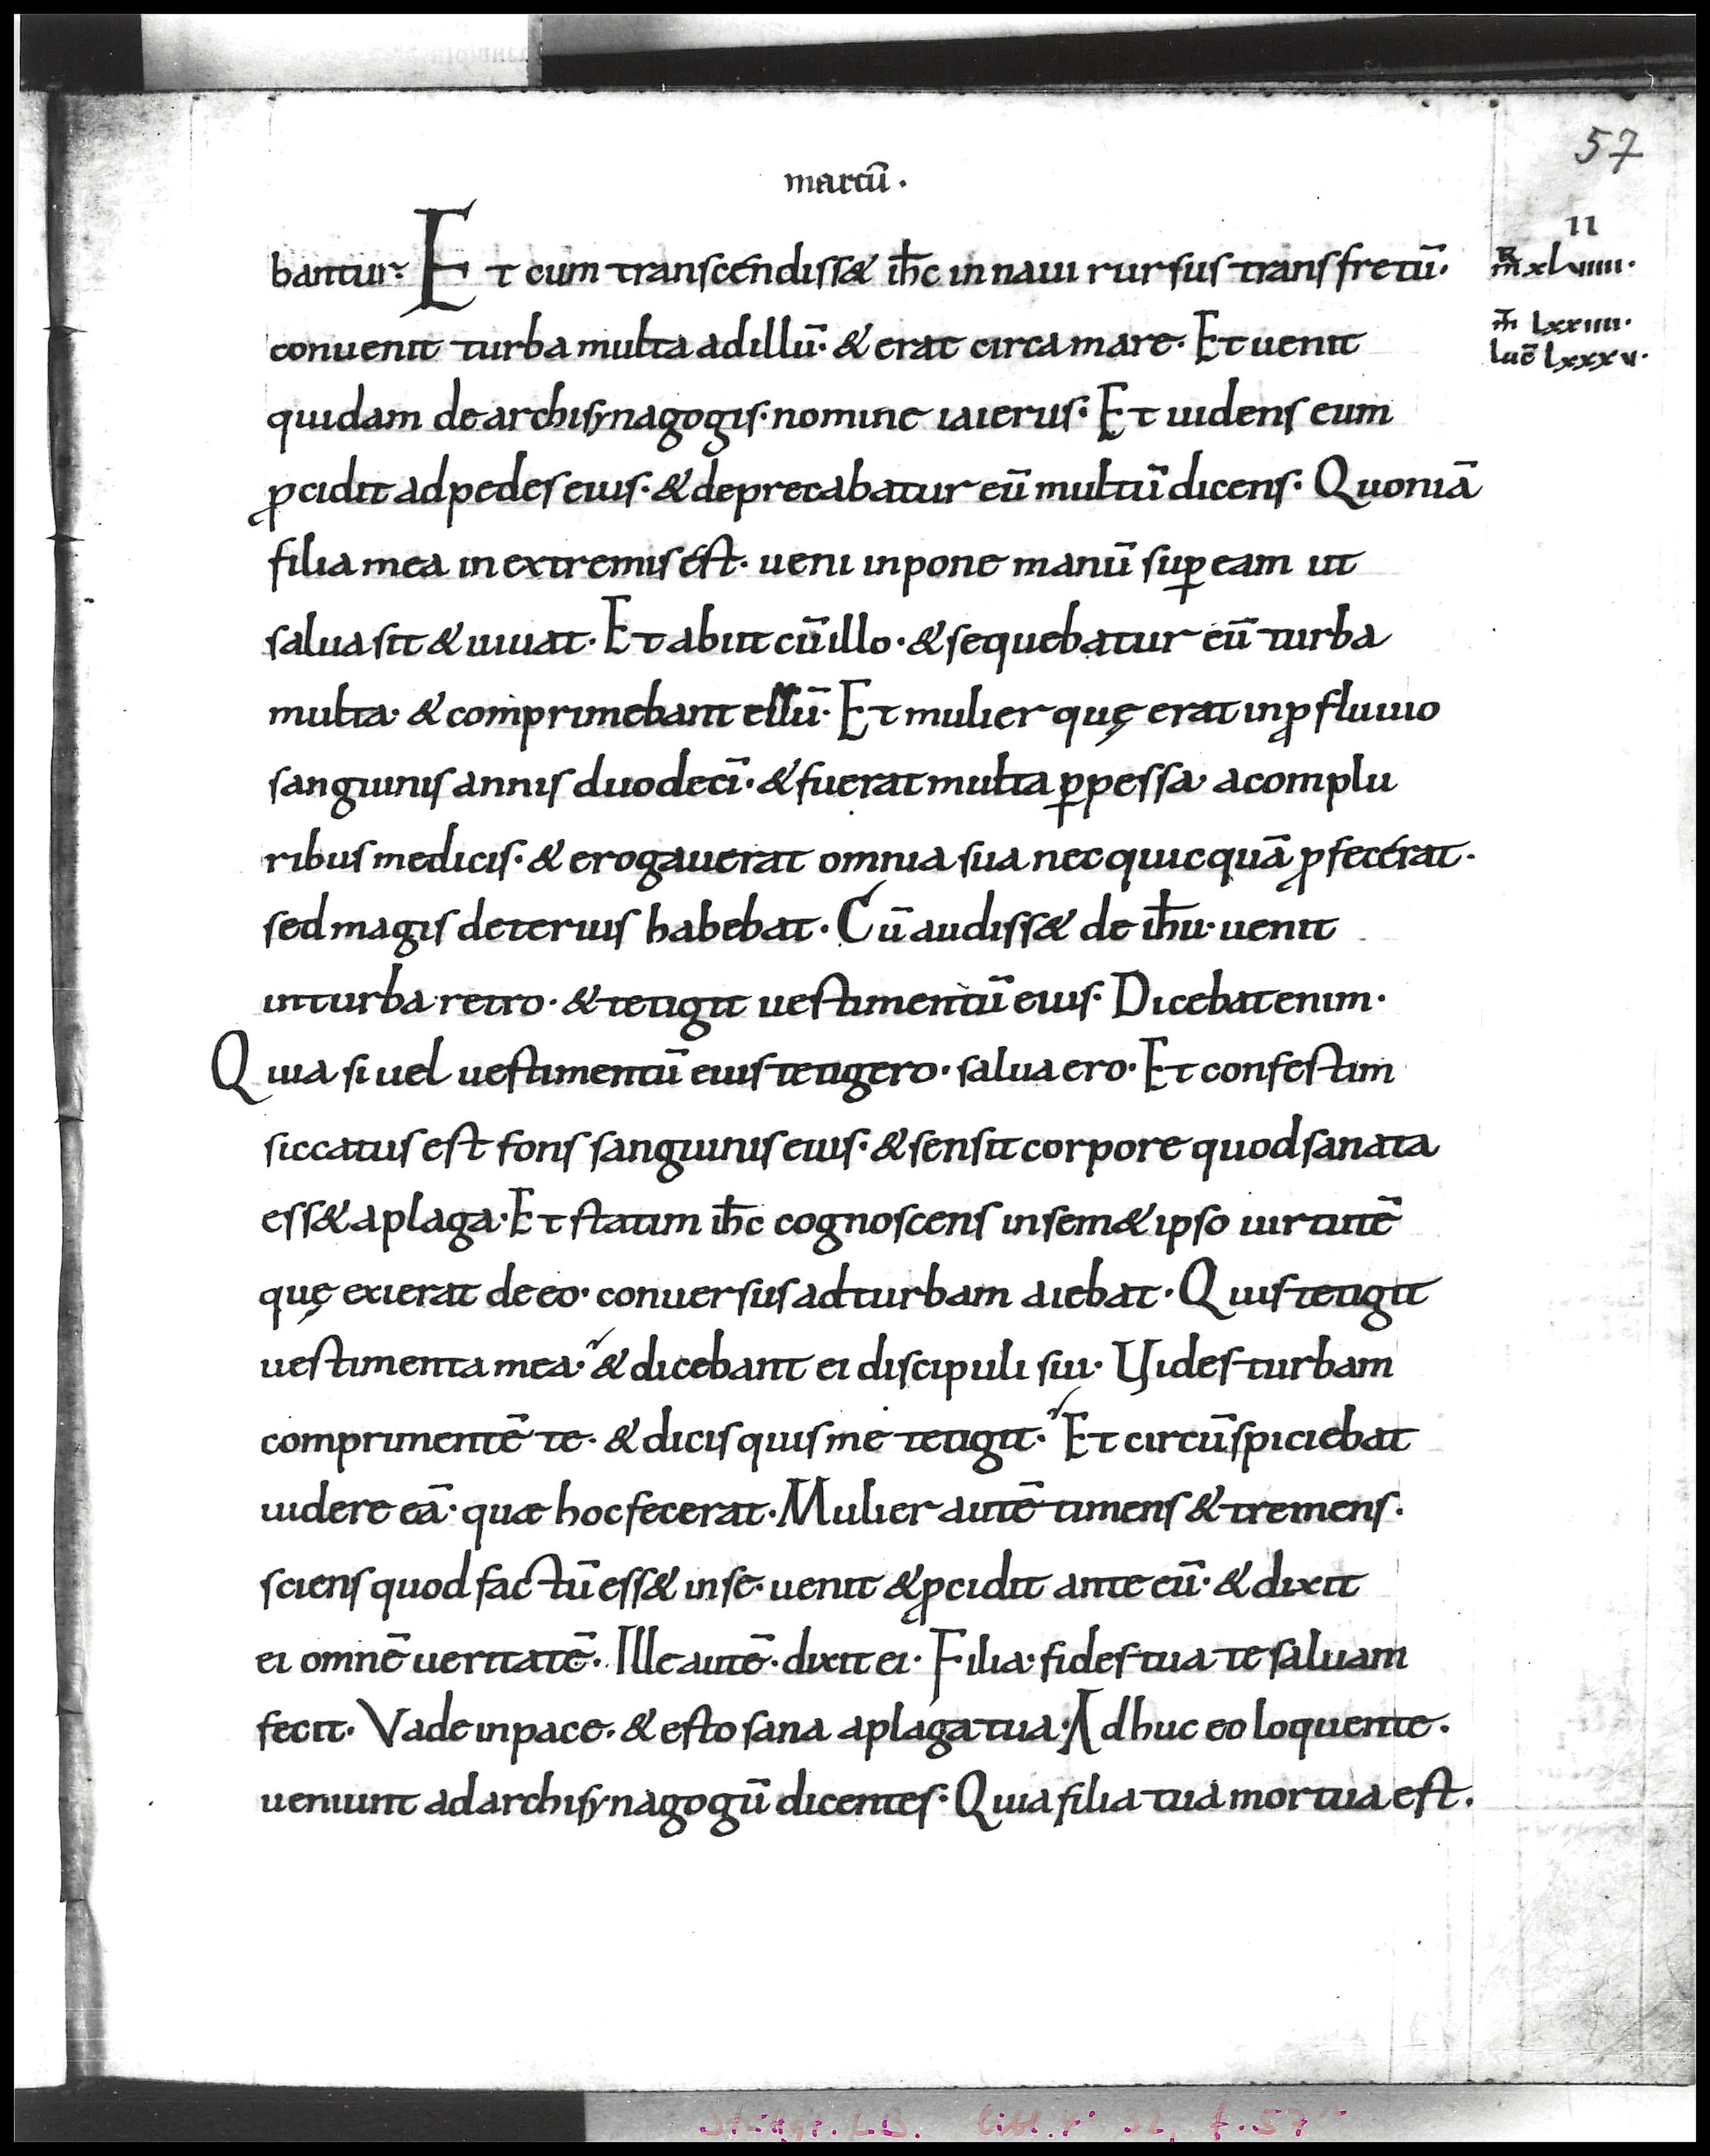 57
marcū.
bantur. Et cum transcéndiss& ih̄c in naui rursus trans fretū.
II
m̄r xlviiii.
conuenit turba multa ad illū. & erat circa mare. Et uenit
m̄ lxxiiii.
luc̄ lxxxv.
quidam de archisynagogis. nomine iaierus. Et uidens eum
ꝓcidit ad pedes eius. & deprecabatur eū multū dicens. Quoniā
filia mea in extremis ést. ueni inpone manū suꝑ eam ut
salua sit & uiuat. Et abiit cū illo. & sequebatur eū turba
multa. & comprimebant ellū. Et mulier quę erat in ꝓfluuio
sanguinis annis duodecī. & fuerat multa ꝑpessa a complu
ribus medicis. & erogauerat omnia sua nec quicquā ꝓfecérat.
sed magis deterius habebat. Cū audiss& de ih̄u. uenit
in turba retro. & tetigit uestimentū eius. Dicebat enim.
Quia si uel uestimentū eius tetigero. salua ero. Et confestim
siccatus est fons sanguinis eius. & sensit corpore quod sanata
ess& a plaga. Et statim ih̄c cognoscens in sem&ipso uirtutē
quę exierat de eo. conuersus ad turbam aiebat. Quis tetigit
uestimenta mea. & dicebant ei discipuli sui. Uides turbam
comprimentē te. & dicis quis me tetigit. Et circūspiciebat
uidere eā. quæ hoc fecerat. Mulier autē timens & tremens.
sciens quod factū ess& in se. uenit & ꝓcidit ante eū. & dixit
ei omnē ueritatē. Ille autē. dixit ei. Filia. fides tua te saluam
fecit. Vade in pace. & esto sana a plaga tua. Adhuc eo loquente.
ueniunt ad archisynagogū dicentes. Quia filia tua mortua est.